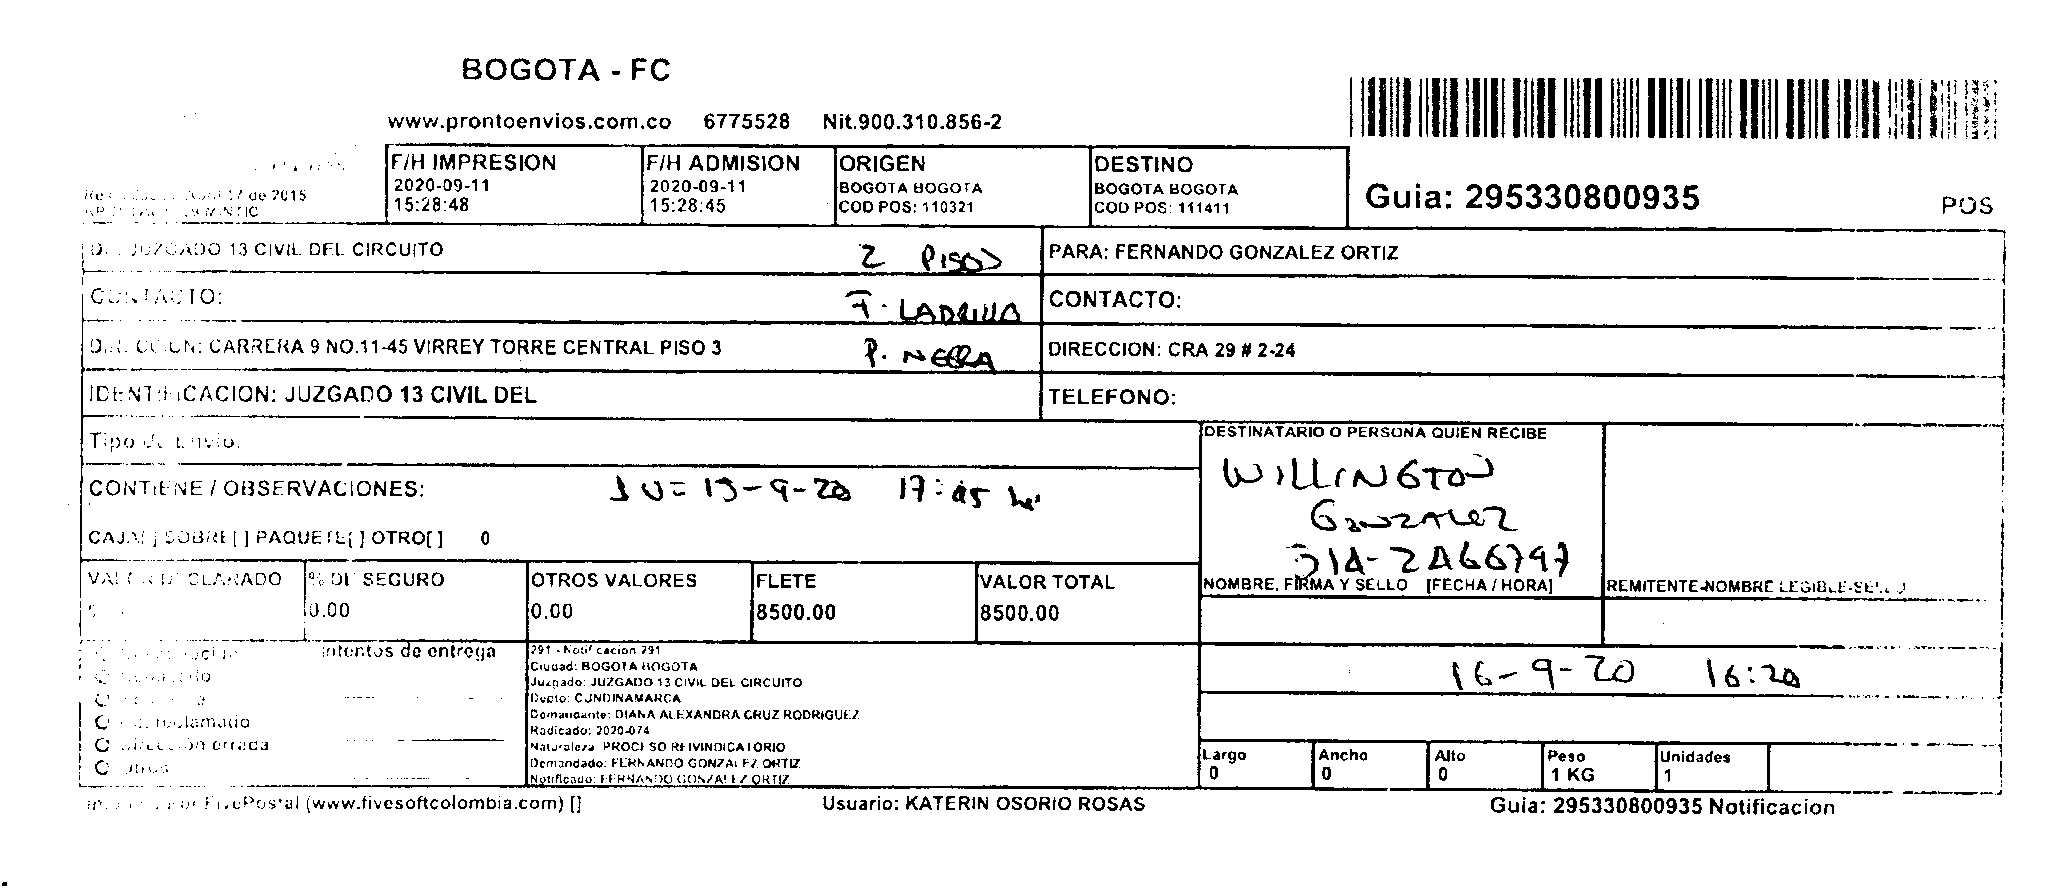 BOGOTA - FC
www.prontoenvios.com.co 6775528 Nit.900.310.856-2
17 de 2015
F/H IMPRESION
2020-09-11
15:28:48
F/H ADMISION
2020-09-11
15:28:45
ORIGEN
BOGOTA BOGOTA
COD POS: 110321
DESTINO
BOGOTA BOGOTA
COD POS: 111411
Guia: 295330800935
POS
JUZGADO 13 CIVIL DEL CIRCUITO
2 PISOS
PARA: FERNANDO GONZALEZ ORTIZ
CONTACTO:
F. LADRILLO
CONTACTO:
CARRERA 9 NO.11-45 VIRREY TORRE CENTRAL PISO 3
P. NEGRA
DIRECCION: CRA 29 # 2-24
IDENTIFICACION: JUZGADO 13 CIVIL DEL
TELEFONO:
Tipo de Envio:
DESTINATARIO O PERSONA QUIEN RECIBE
WILLINGTON
GONZALEZ
CONTIENE / OBSERVACIONES:
17:45
CAJA[ ] SOBRE[ ] PAQUETE[ ] OTRO[ ] 0
NOMBRE, FIRMA Y SELLO [FECHA / HORA]
REMITENTE-NOMBRE LEGIBLE-SELLO
VALOR DECLARADO
% DE SEGURO
0.00
OTROS VALORES
0.00
FLETE
8500.00
VALOR TOTAL
8500.00
intentos de entrega
reclamado
Dirección errada
Otros
291 - Notificacion 291
Ciudad: BOGOTA BOGOTA
Juzgado: JUZGADO 13 CIVIL DEL CIRCUITO
Depto: CUNDINAMARCA
Demandante: DIANA ALEXANDRA CRUZ RODRIGUEZ
Radicado: 2020-074
Naturaleza: PROCESO REIVINDICATORIO
Demandado: FERNANDO GONZALEZ ORTIZ
Notificado: FERNANDO GONZALEZ ORTIZ
16-9-20 16:20
Largo
0
Ancho
0
Alto
0
Peso
1 KG
Unidades
1
FivePostal (www.fivesoftcolombia.com) []
Usuario: KATERIN OSORIO ROSAS
Guia: 295330800935 Notificacion